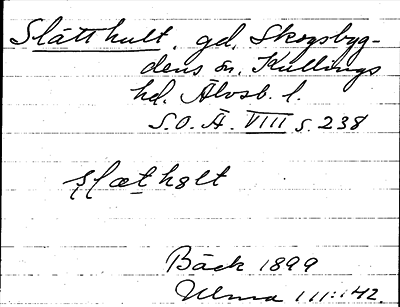 Slätthult. gd. Skogsbyg-
dens sn. Kullings
hd. Älvsb. l.
S.O.Ä. VIII s. 238
slæthølt
Bäck 1899
Ulma 111:142.